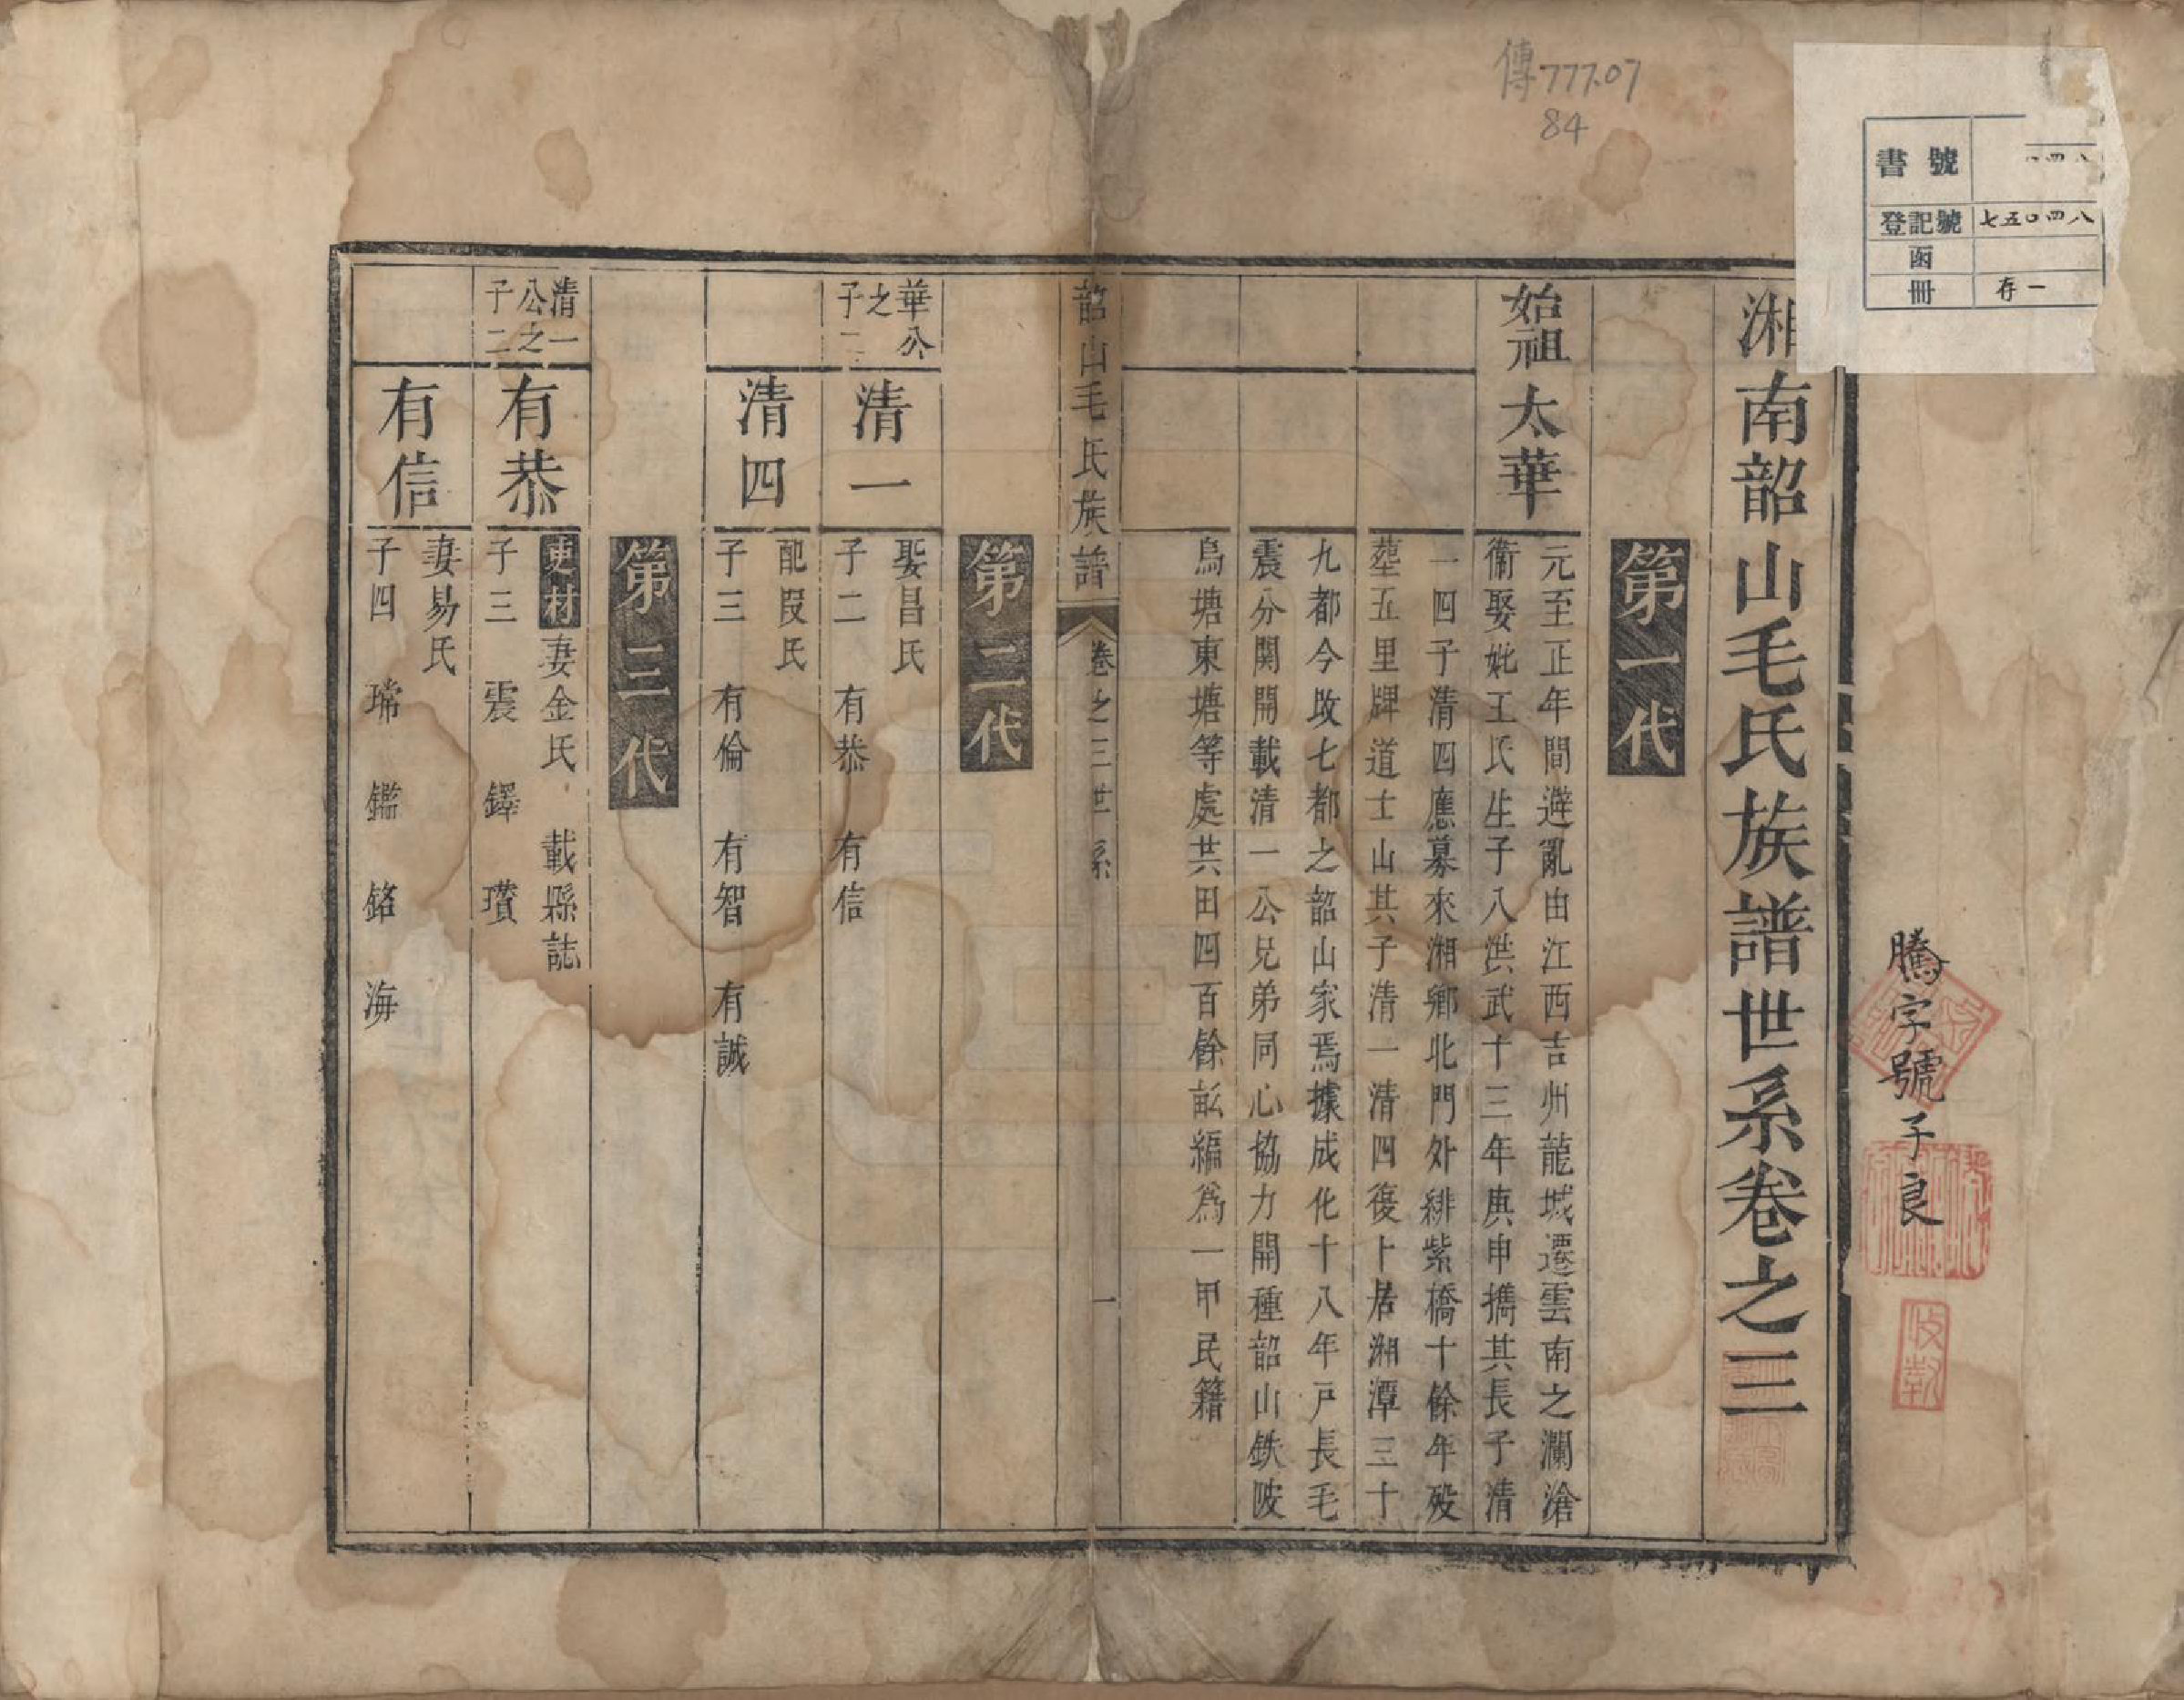 傳777.07
84
書號
登記號 七五〇四八
函
冊 存一
騰字號子良
湘南韶山毛氏族譜世系卷之三
第一代
始祖
太華
元至正年間避亂由江西吉州龍城遷雲南之瀾滄
衛娶妣王氏生子八洪武十三年庚申攜其長子清
一四子清四應募來湘鄉北門外緋紫橋十餘年歿
塟五里牌道士山其子清一清四復卜居湘潭三十
九都今改七都之韶山家焉據成化十八年戸長毛
震分關開載清一公兄弟同心協力開種韶山鉄陂
烏塘東塘等處共田四百餘畝編為一甲民籍
韶山毛氏族譜 卷之三世系 一
第二代
華公之子二
清一
娶昌氏
子二 有恭 有信
清四
配段氏
子三 有倫 有智 有誠
第三代
清一公之子二
有恭
吏材 妻金氏 載縣誌
子三 震 鐸 瓚
有信
妻易氏
子四 瑺 鑑 銘 海